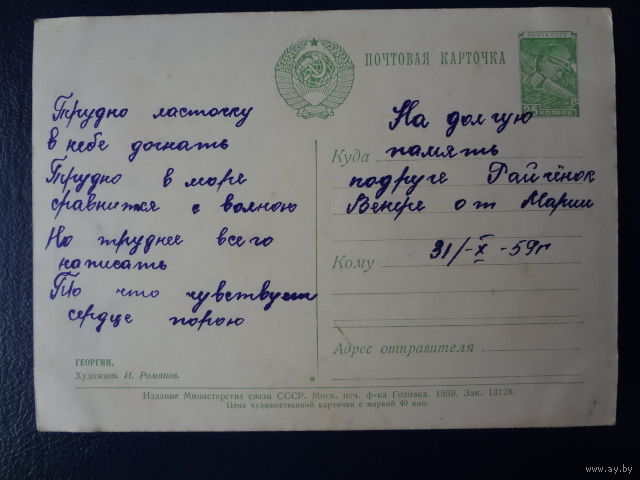 ПОЧТОВАЯ КАРТОЧКА
ПОЧТА СССР
25 КОПЕЕК
Трудно ласточку
в небе догнать
Трудно в море
сравнится с волною
Но труднее всего
написать
То что чувствует
сердце порою
На долгую
Куда память
подруге Гайчёнок
Венере от Марии
31/-X-59г
Кому
Адрес отправителя
ГЕОРГИН.
Художник И. Романов.
Издание Министерства связи СССР. Моск. печ. ф-ка Гознака. 1959. Зак. 13128.
Цена художественной карточки с маркой 40 коп.
www.ay.by